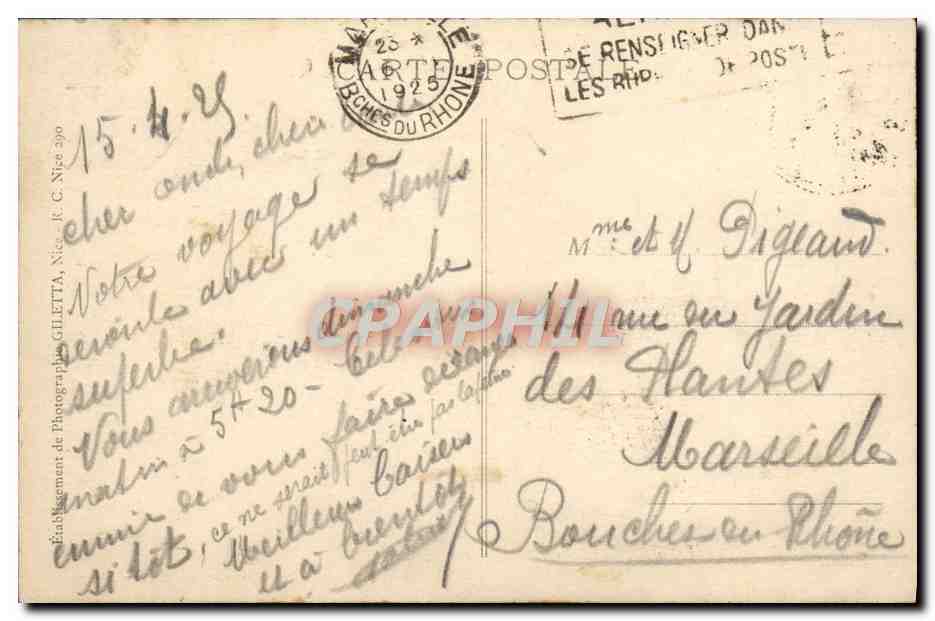 CARTE POSTALE
MARSEILLE
23 *
6
1925
BCHES DU RHONE
SE RENSEIGNER DANS
LES BUREAUX DE POSTE
15.4.25.
cher oncle, chère
Votre voyage se
seroule avec un temps
superbe.
Vous arriverions dimanche
matin à 5H20 - Cela
ennuie de vous faire déranger
si tôt, ce ne serait peut être pas la peine.
Meilleurs baisers
et à bientôt
Mme et M Pigeaud.
14 rue du Jardin
des Plantes
Marseille
Bouches du Rhône
Établissement de Photographie GILETTA, Nice - R. C. Nice 290
CPAPHIL